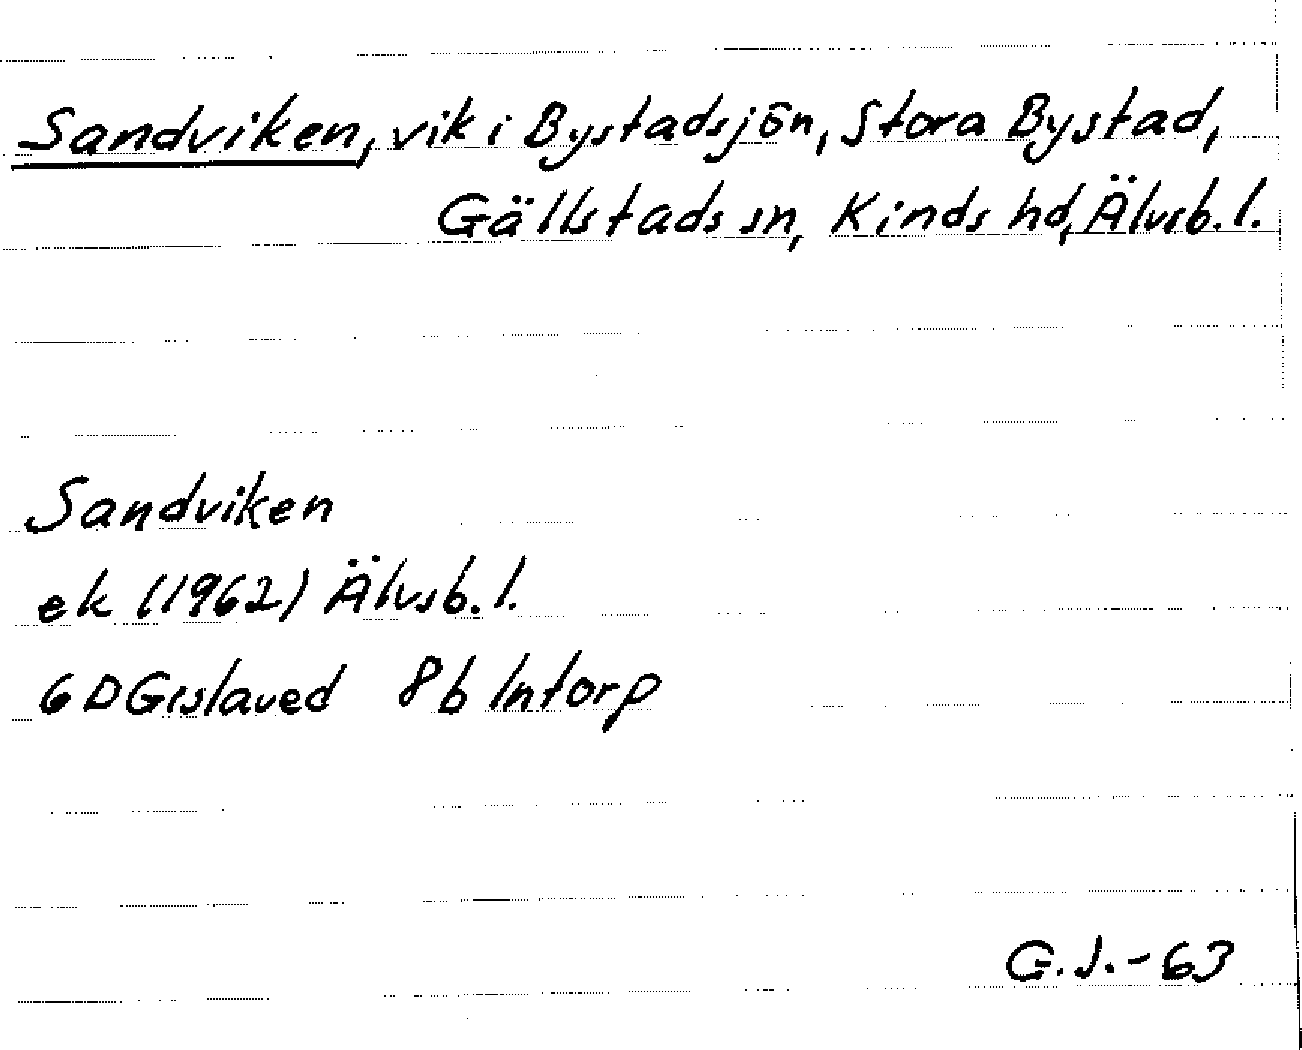 Sandviken, vik i Bystadsjön, Stora Bystad,
Gällstads sn, Kinds hd, Älvsb. l.
Sandviken
ek (1962) Älvsb. l.
6 D Gislaved 8b Intorp
G.J.-63